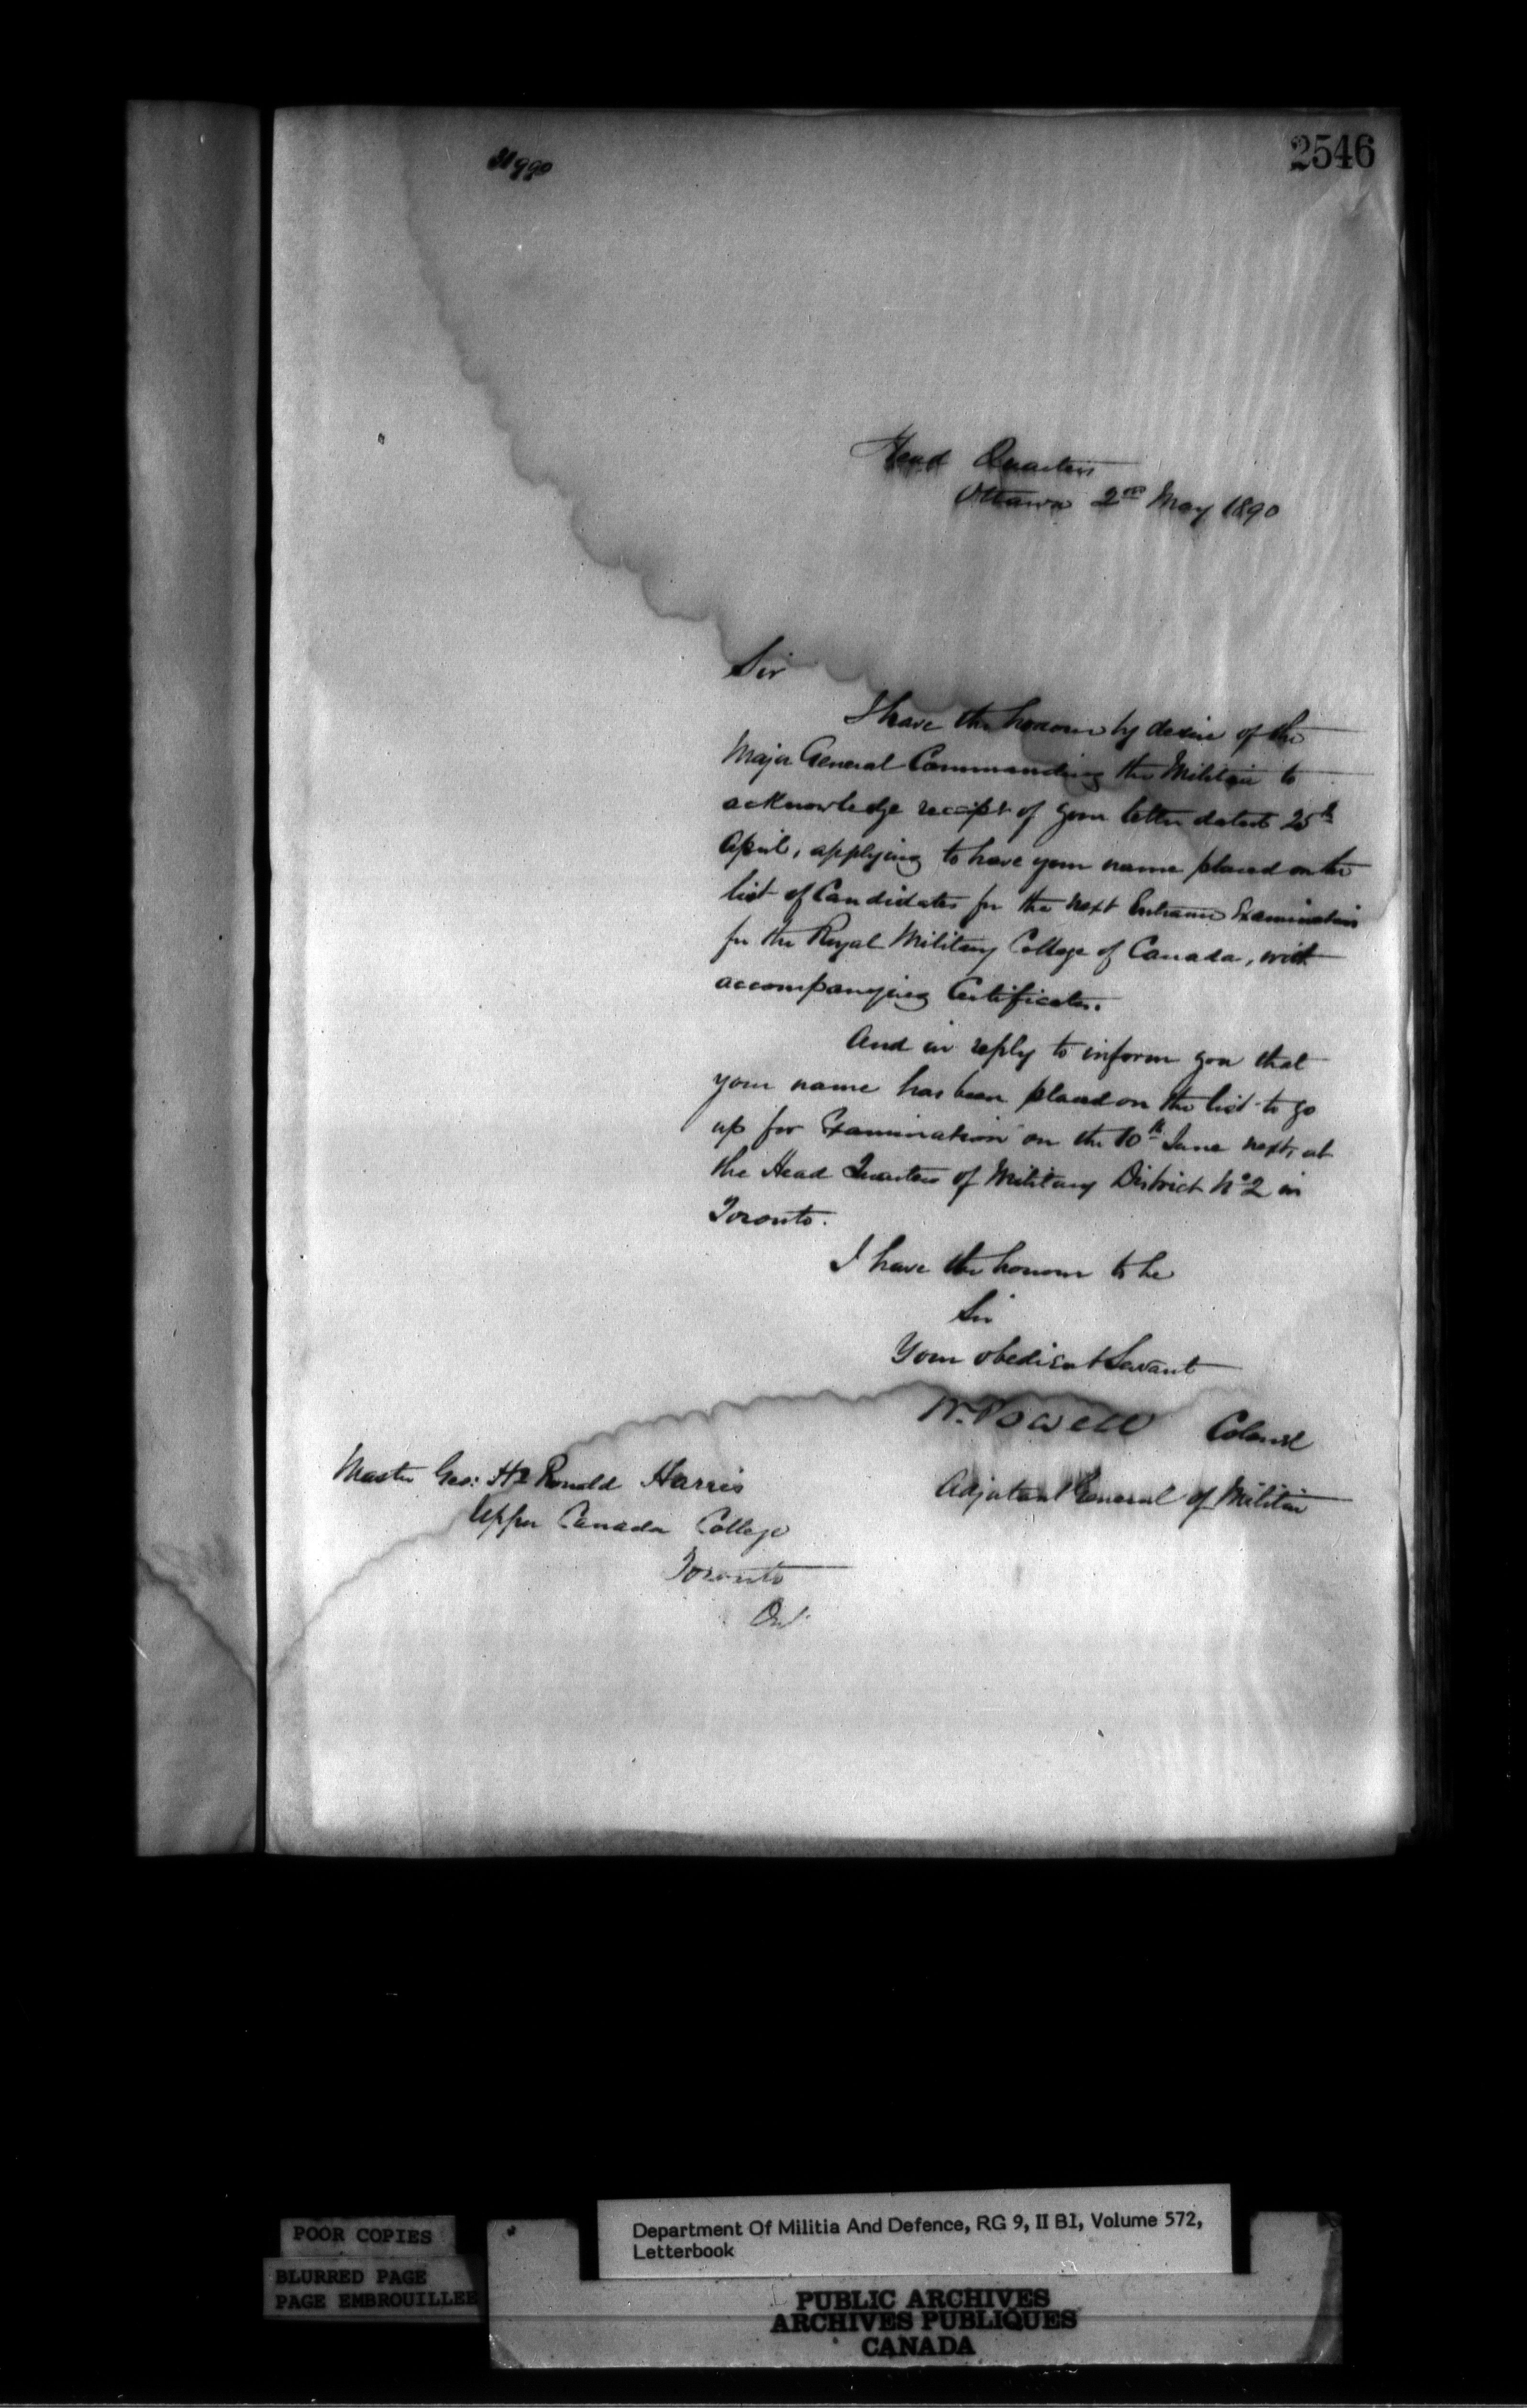 2546
Head Quarters
Ottawa 2nd May 1890
Sir
I have the honour by desire of the
Major General Commanding the Militia to
acknowledge receipt of your letter dated 25th
April, applying to have your name placed on the
list of Candidates for the next Entrance Examination
for the Royal Military College of Canada, with
accompanying Certificates.
And in reply to inform you that
your name has been placed on the list to go
up for Examination on the 10th June next, at
the Head Quarters of Military District No 2 in
Toronto.
I have the honour to be
Sir
Your obedient Servant
W. Powell Colonel
Adjutant General of Militia
Master Geo: Ronald Harris
Upper Canada College
Toronto
Ont.
POOR COPIES
BLURRED PAGE
PAGE EMBROUILLEE
Department Of Militia And Defence, RG 9, II B1, Volume 572,
Letterbook
PUBLIC ARCHIVES
ARCHIVES PUBLIQUES
CANADA